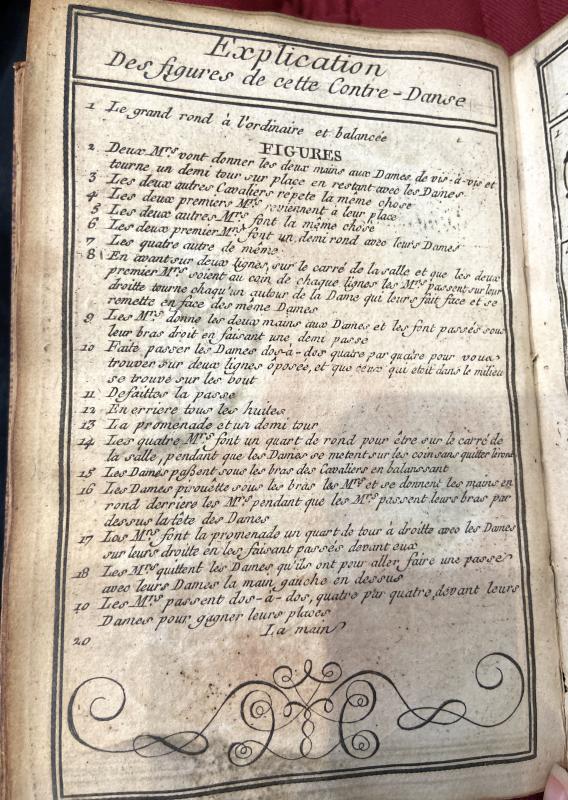 Explication
Des figures de cette Contre-Danse
1 Le grand rond à l'ordinaire et balancée
FIGURES
2 Deux Mrs vont donner les deux mains aux Dames de vis-à-vis et
tourne un demi tour sur place en restant avec les Dames
3 Les deux autres Cavaliers répete la même chose
4 Les deux premiers Mrs reviennent à leur place
5 Les deux autres Mrs font la même chose
6 Les deux premier Mrs font un demi rond avec leurs Dames
7 Les quatre autre de même
8 En avant sur deux lignes, sur le carré de la salle et que les deux
premier Mrs soient au coin de chaque lignes les Mrs passent sur leur
droitte tourne chaqu'un autour de la Dame qui leurs fait face et se
remette en face des même Dames
9 Les Mrs donne les deux mains aux Dames et les font passés sous
leur bras droit en faisant une demi passe
10 Faite passer les Dames dos-à-dos quatre par quatre pour vous
trouver sur deux lignes oposée, et que ceux qui étoit dans le milieu
se trouve sur les bout
11 Defaittes la passe
12 En erriere tous les huites
13 La promenade et un demi tour
14 Les quatre Mrs font un quart de rond pour être sur le carré de
la salle, pendant que les Dames se metent sur les coin sans quitter le rond
15 Les Dames paßent sous les bras des Cavaliers en balanssant
16 Les Dames pirouêtte sous les bras les Mrs et se donnent les mains en
rond derriere les Mrs pendant que les Mrs passent leurs bras par
dessus la tête des Dames
17 Los Mrs font la promenade un quart de tour à droitte avec les Dames
sur leurs droitte en les faisant passés devant eux
18 Les Mrs quittent les Dames qu'ils ont pour aller faire une passe
avec leurs Dames la main gauche en dessus
19 Les Mrs passent dos-à-dos, quatre par quatre devant leurs
Dames pour gagner leurs places
20 La main